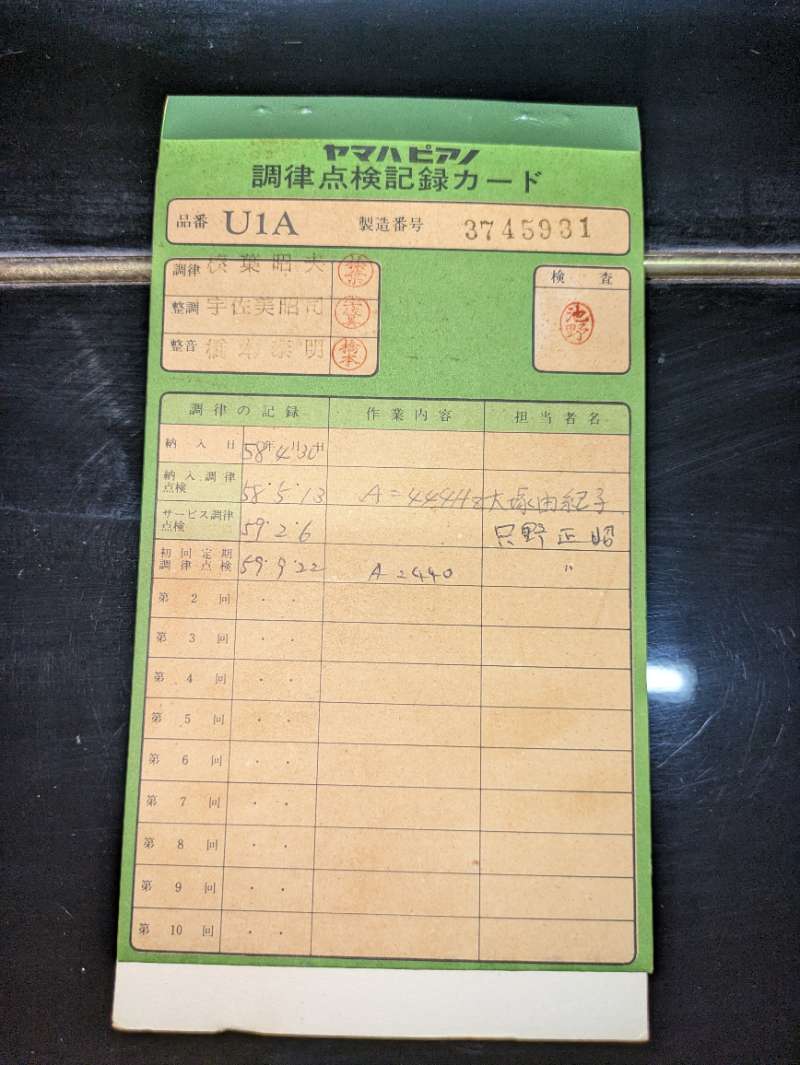 ヤマハピアノ
調律点検記録カード
品番 U1A 製造番号 3745931
調律 葉昭夫
検査
池野
整調 宇佐美昭司
整音 橋本泰明 橋本
調律の記録 作業内容 担当者名
納入日 58年4月30日
納入調律点検 58・5・13 A=444Hz 大塚由紀子
サービス調律点検 59・2・6 只野正昭
初回定期調律点検 59・9・22 A=440 〃
第2回 ・ ・
第3回 ・ ・
第4回 ・ ・
第5回 ・ ・
第6回 ・ ・
第7回 ・ ・
第8回 ・ ・
第9回 ・ ・
第10回 ・ ・